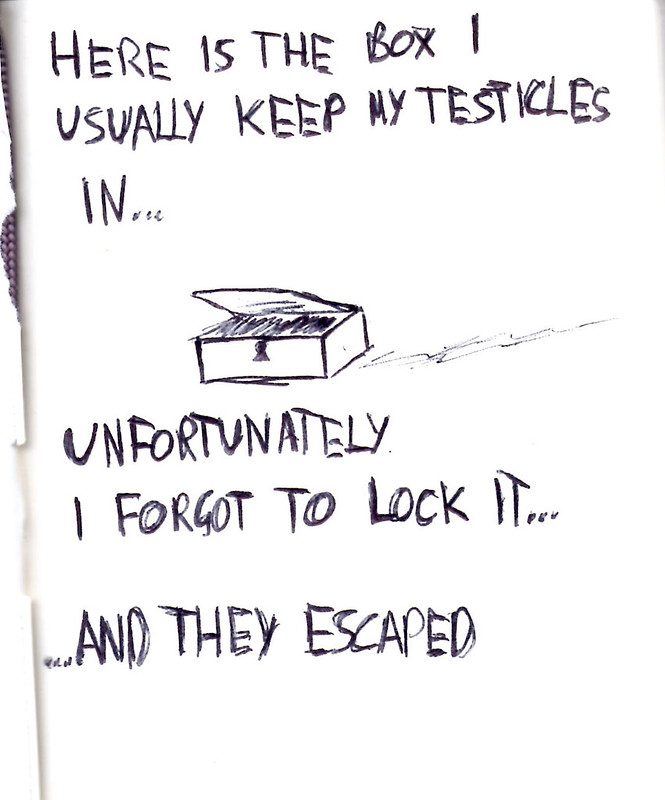 HERE IS THE BOX I
USUALLY KEEP MY TESTICLES
IN...
UNFORTUNATELY
I FORGOT TO LOCK IT...
...AND THEY ESCAPED